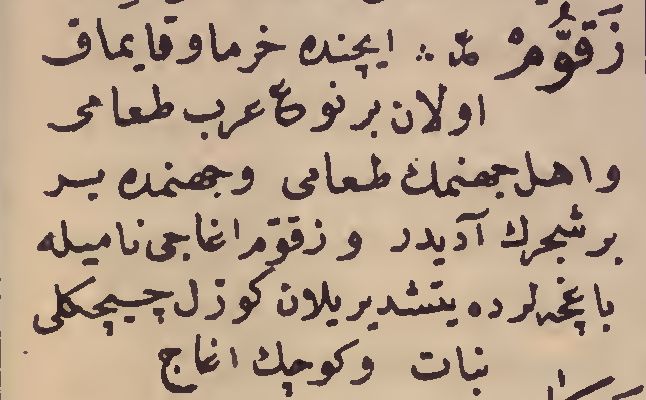 زَقُّومْ ایچنده خرما و قایماق
اولان بر نوع عرب طعامی
و اهل جهنمك طعامی و جهنمده بر
بر شجرك آدیدر و زقوم اغاجی نامیله
باغچه لرده یتشدیریلان كوزل چیچكلی
نبات و كوچك اغاج